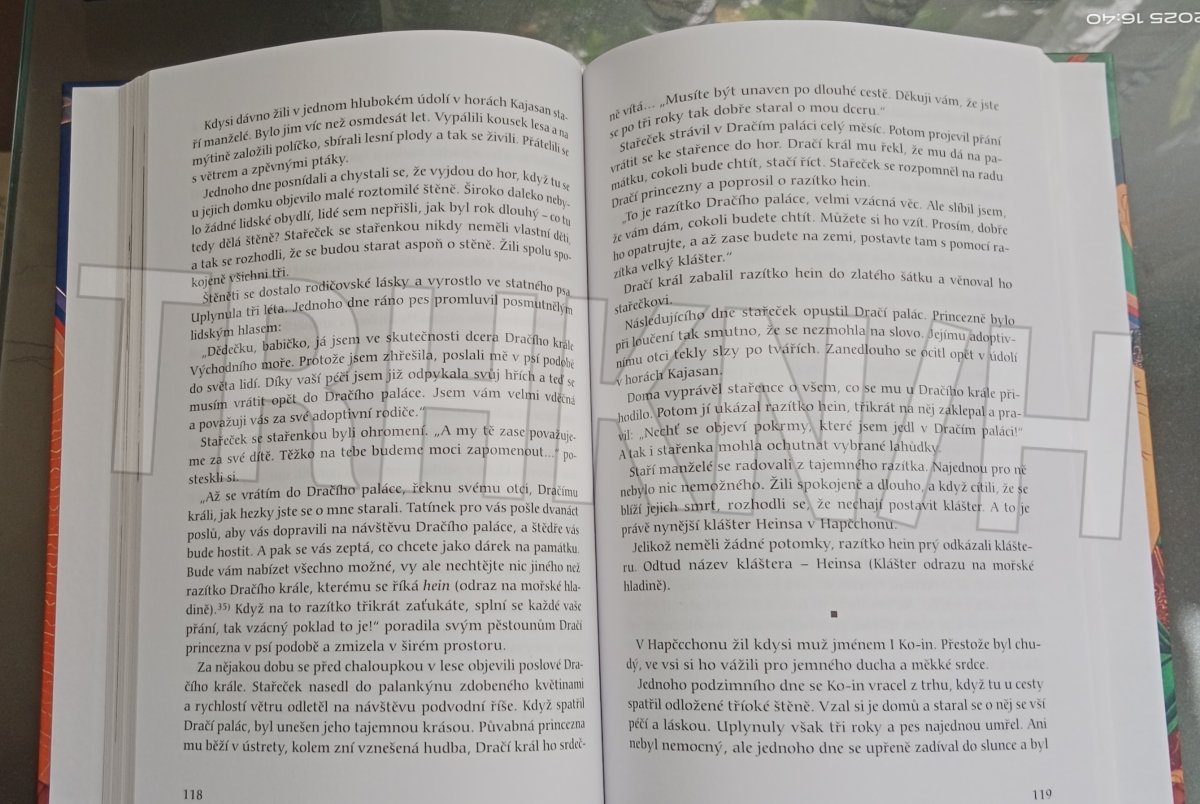 2025 16:40
Kdysi dávno žili v jednom hlubokém údolí v horách Kajasan sta-
ří manželé. Bylo jim víc než osmdesát let. Vypálili kousek lesa a na
mýtině založili políčko, sbírali lesní plody a tak se živili. Přátelili se
s větrem a zpěvnými ptáky.
Jednoho dne posnídali a chystali se, že vyjdou do hor, když tu se
u jejich domku objevilo malé roztomilé štěně. Široko daleko neby-
lo žádné lidské obydlí, lidé sem nepřišli, jak byl rok dlouhý – co tu
tedy dělá štěně? Stařeček se stařenkou nikdy neměli vlastní děti,
a tak se rozhodli, že se budou starat aspoň o stěně. Žili spolu spo-
kojeně všichni tři.
Štěněti se dostalo rodičovské lásky a vyrostlo ve statného psa.
Uplynula tři léta. Jednoho dne ráno pes promluvil posmutnělým
lidským hlasem:
„Dědečku, babičko, já jsem ve skutečnosti dcera Dračího krále
Východního moře. Protože jsem zhřešila, poslali mě v psí podobě
do světa lidí. Díky vaší péči jsem již odpykala svůj hřích a teď se
musím vrátit opět do Dračího paláce. Jsem vám velmi vděčná
a považuji vás za své adoptivní rodiče.“
Stařeček se stařenkou byli ohromení. „A my tě zase považuje-
me za své dítě. Těžko na tebe budeme moci zapomenout...“ po-
steskli si.
„Až se vrátím do Dračího paláce, řeknu svému otci, Dračímu
králi, jak hezky jste se o mne starali. Tatínek pro vás pošle dvanáct
poslů, aby vás dopravili na návštěvu Dračího paláce, a štědře vás
bude hostit. A pak se vás zeptá, co chcete jako dárek na památku.
Bude vám nabízet všechno možné, vy ale nechtějte nic jiného než
razítko Dračího krále, kterému se říká hein (odraz na mořské hla-
dině).³⁵⁾ Když na to razítko třikrát zaťukáte, splní se každé vaše
přání, tak vzácný poklad to je!“ poradila svým pěstounům Dračí
princezna v psí podobě a zmizela v širém prostoru.
Za nějakou dobu se před chaloupkou v lese objevili poslové Dra-
čího krále. Stařeček nasedl do palankýnu zdobeného květinami
a rychlostí větru odletěl na návštěvu podvodní říše. Když spatřil
Dračí palác, byl unešen jeho tajemnou krásou. Půvabná princezna
mu běží v ústrety, kolem zní vznešená hudba, Dračí král ho srdeč-
118
ně vítá... „Musíte být unaven po dlouhé cestě. Děkuji vám, že jste
se po tři roky tak dobře staral o mou dceru.“
Stařeček strávil v Dračím paláci celý měsíc. Potom projevil přání
vrátit se ke stařence do hor. Dračí král mu řekl, že mu dá na pa-
mátku, cokoli bude chtít, stačí říct. Stařeček se rozpomněl na radu
Dračí princezny a poprosil o razítko hein.
„To je razítko Dračího paláce, velmi vzácná věc. Ale slíbil jsem,
že vám dám, cokoli budete chtít. Můžete si ho vzít. Prosím, dobře
ho opatrujte, a až zase budete na zemi, postavte tam s pomocí ra-
zítka velký klášter.“
Dračí král zabalil razítko hein do zlatého šátku a věnoval ho
stařečkovi.
Následujícího dne stařeček opustil Dračí palác. Princezně bylo
při loučení tak smutno, že se nezmohla na slovo. Jejímu adoptiv-
nímu otci tekly slzy po tvářích. Zanedlouho se ocitl opět v údolí
v horách Kajasan.
Doma vyprávěl stařence o všem, co se mu u Dračího krále při-
hodilo. Potom jí ukázal razítko hein, třikrát na něj zaklepal a pra-
vil: „Nechť se objeví pokrmy, které jsem jedl v Dračím paláci!“
A tak i stařenka mohla ochutnat vybrané lahůdky.
Staří manželé se radovali z tajemného razítka. Najednou pro ně
nebylo nic nemožného. Žili spokojeně a dlouho, a když cítili, že se
blíží jejich smrt, rozhodli se, že nechají postavit klášter. A to je
právě nynější klášter Heinsa v Hapčchonu.
Jelikož neměli žádné potomky, razítko hein prý odkázali klášte-
ru. Odtud název kláštera – Heinsa (Klášter odrazu na mořské
hladině).
V Hapčchonu žil kdysi muž jménem I Ko-in. Přestože byl chu-
dý, ve vsi si ho vážili pro jemného ducha a měkké srdce.
Jednoho podzimního dne se Ko-in vracel z trhu, když tu u cesty
spatřil odložené tříoké štěně. Vzal si je domů a staral se o něj se vší
péčí a láskou. Uplynuly však tři roky a pes najednou umřel. Ani
nebyl nemocný, ale jednoho dne se upřeně zadíval do slunce a byl
119
TRHKNIH